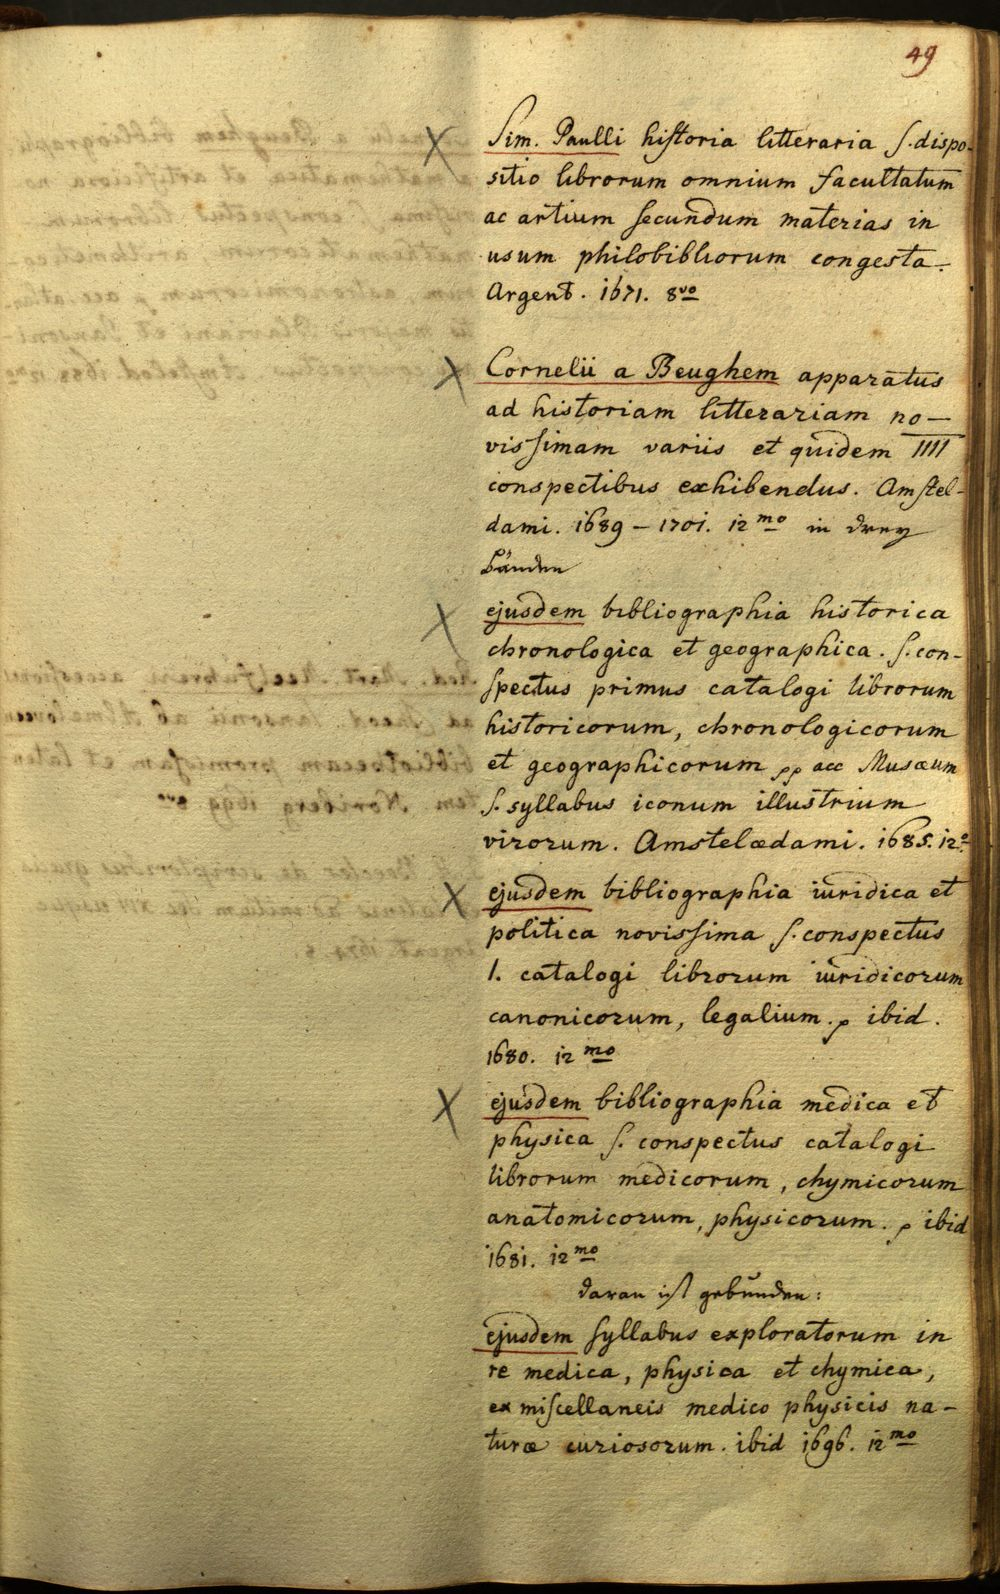 49
Sim. Paulli historia litteraria s. dispo-
sitio librorum omnium facultatum
ac artium secundum materias in
usum philobibliorum congesta.
Argent. 1671. 8vo
Cornelii a Beughem apparatus
ad historiam litterariam no-
vissimam variis et quidem IIII
conspectibus exhibendus. Amstel-
dami. 1689 – 1701. 12mo in drey
Bänden
ejusdem bibliographia historica
chronologica et geographica. s. con-
spectus primus catalogi librorum
historicorum, chronologicorum
et geographicorum pp acc Musæum
s. syllabus iconum illustrium
virorum. Amstelædami. 1685. 12o
ejusdem bibliographia iuridica et
politica novissima s. conspectus
1. catalogi librorum iuridicorum
canonicorum, legalium. p ibid.
1680. 12mo
ejusdem bibliographia medica et
physica s. conspectus catalogi
librorum medicorum, chymicorum
anatomicorum, physicorum. p ibid
1681. 12mo
daran ist gebunden:
ejusdem syllabus exploratorum in
re medica, physica et chymica,
ex miscellaneis medico physicis na-
turæ curiosorum. ibid 1696. 12mo